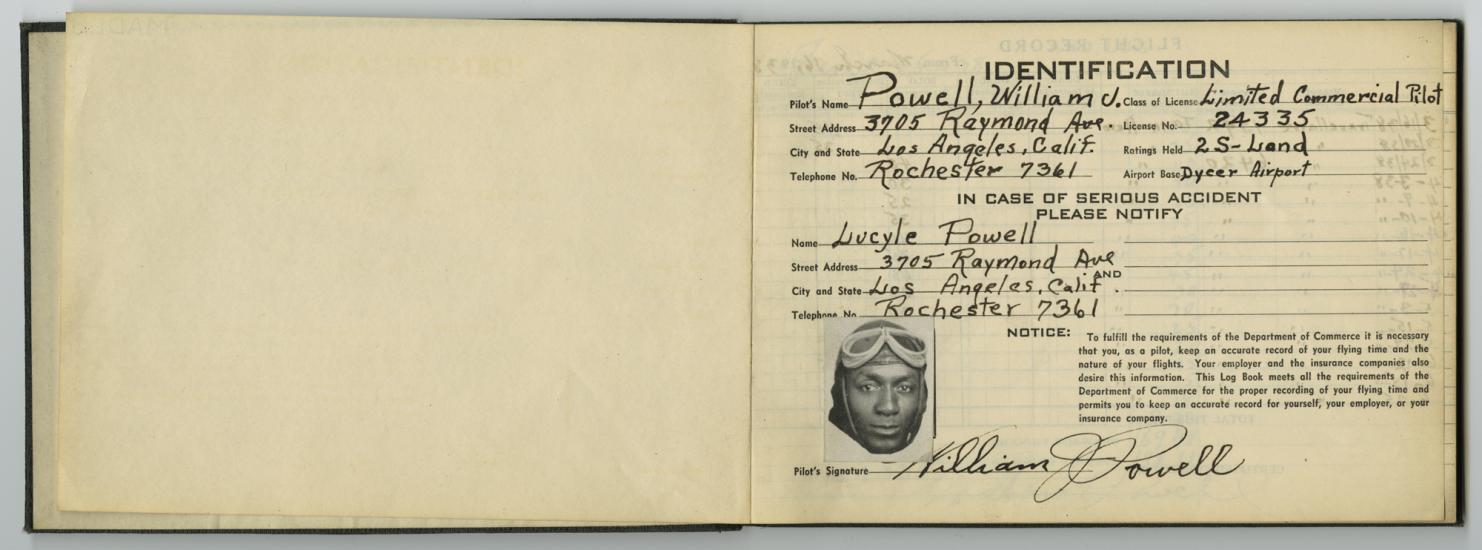 IDENTIFICATION
Pilot's Name Powell, William J. Class of License Limited Commercial Pilot
Street Address 3705 Raymond Ave. License No. 24335
City and State Los Angeles, Calif. Ratings Held 2S-Land
Telephone No. Rochester 7361 Airport Base Dycer Airport
IN CASE OF SERIOUS ACCIDENT
PLEASE NOTIFY
Name Lucyle Powell
Street Address 3705 Raymond Ave
AND
City and State Los Angeles, Calif.
Telephone No. Rochester 7361
NOTICE: To fulfill the requirements of the Department of Commerce it is necessary
that you, as a pilot, keep an accurate record of your flying time and the
nature of your flights. Your employer and the insurance companies also
desire this information. This Log Book meets all the requirements of the
Department of Commerce for the proper recording of your flying time and
permits you to keep an accurate record for yourself, your employer, or your
insurance company.
Pilot's Signature William J Powell